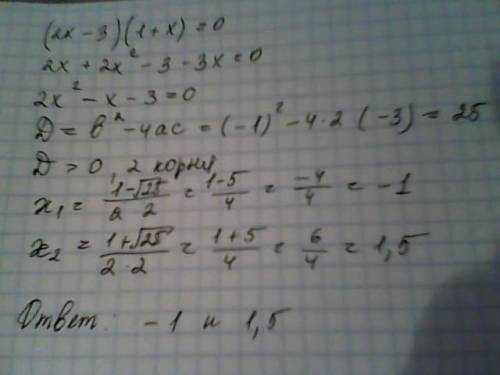 (2x-3)(1+x)=0
2x+2x²-3-3x=0
2x²-x-3=0
D=b²-4ac=(-1)²-4·2(-3)=25
D>0, 2 корня
x₁=(1-√25)/(2·2)=(1-5)/4=(-4)/4=-1
x₂=(1+√25)/(2·2)=(1+5)/4=6/4=1,5
Ответ: -1 и 1,5